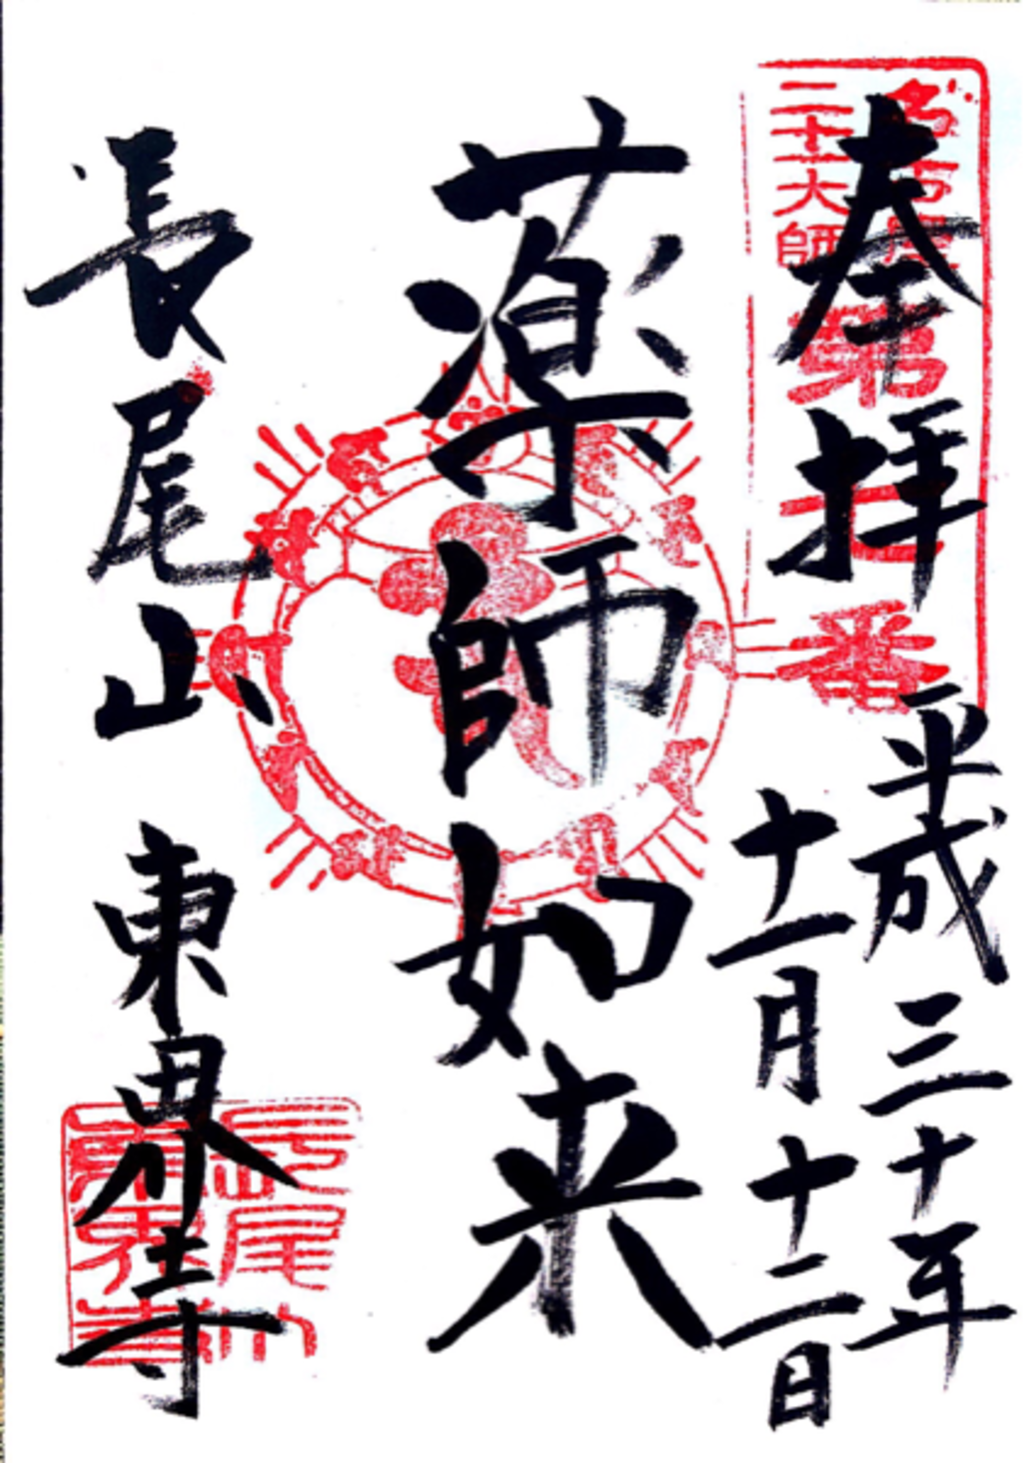 奉拝
平成三十年
十一月十二日
名古屋
二十一大師
第 番
薬師如来
長尾山 東界寺
長尾山
東界寺